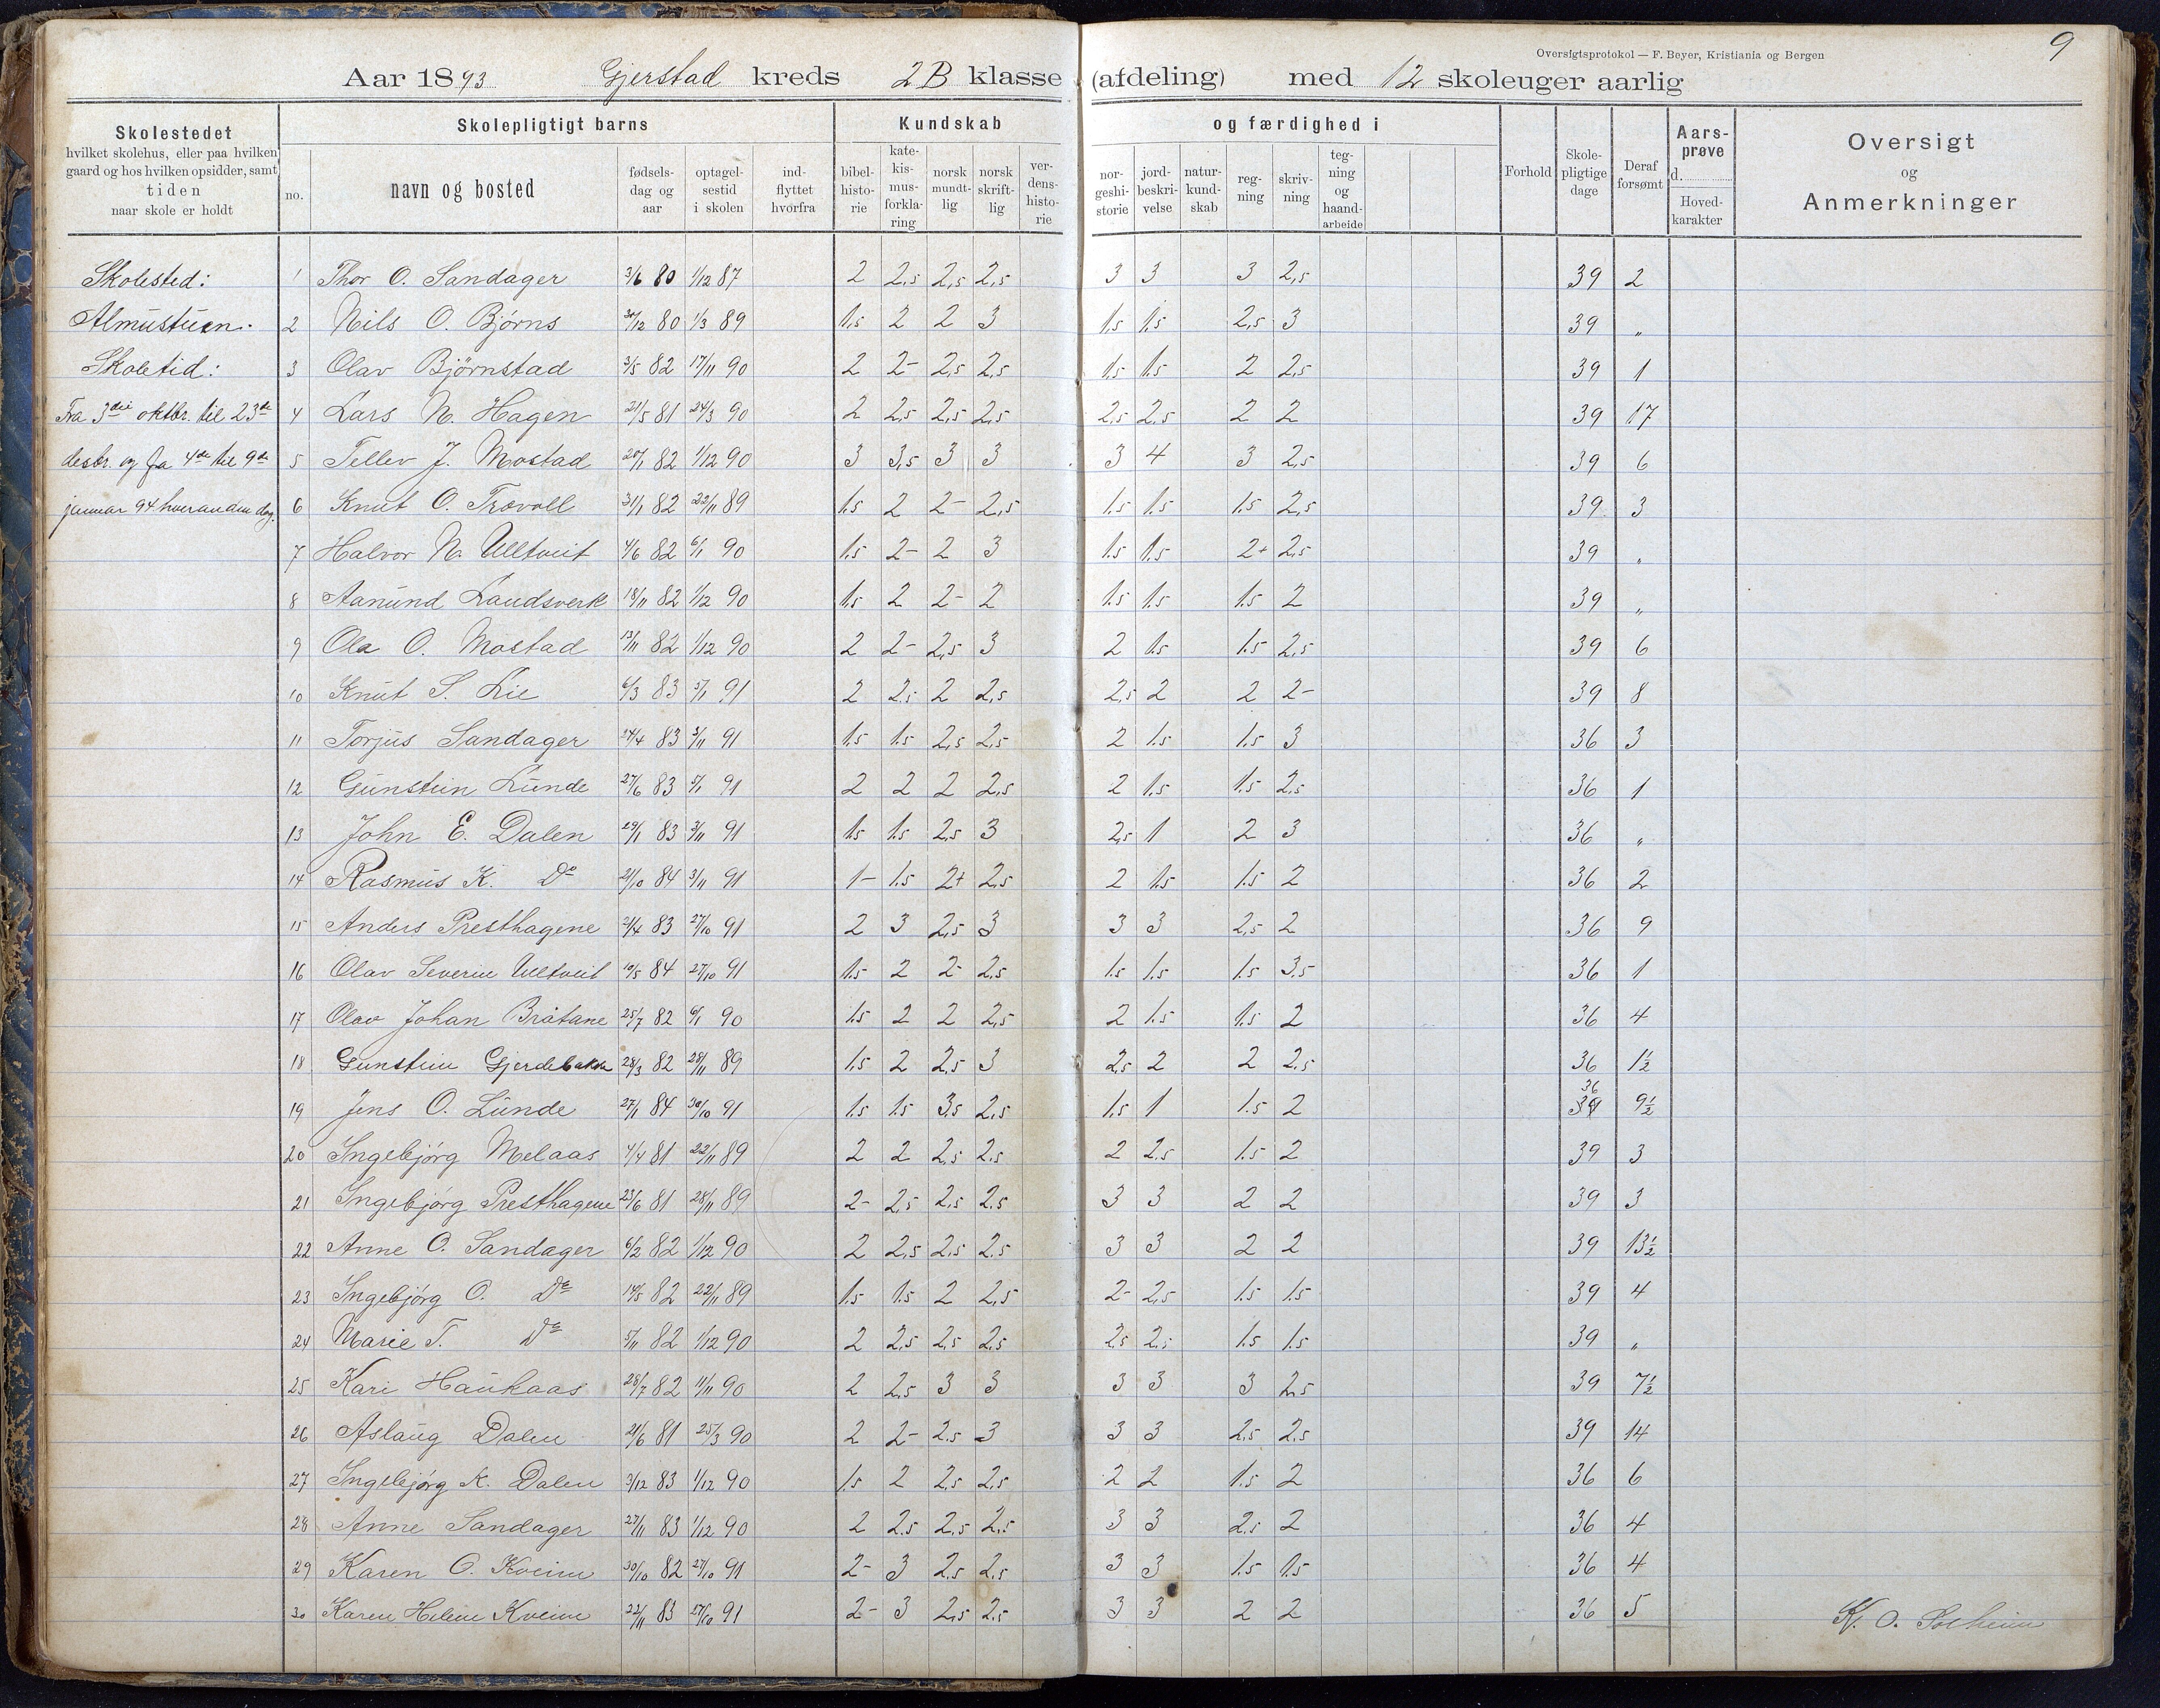 9
Oversigtsprotokol — F. Beyer, Kristiania og Bergen
Aar 1893 Gjerstad kreds 2B klasse (afdeling) med 12 skoleuger aarlig
Skolestedet hvilket skolehus, eller paa hvilken gaard og hos hvilken opsidder, samt tiden naar skole er holdt
Skolepligtigt barns
no. navn og bosted fødsels-dag og aar optagel-sestid i skolen ind-flyttet hvorfra
Kundskab og færdighed i
bibel-histo-rie kate-kis-mus-forkla-ring norsk mundt-lig norsk skrift-lig ver-dens-histo-rie nor-geshi-storie jord-beskri-velse natur-kund-skab reg-ning skriv-ning teg-ning og haand-arbeide
Forhold Skole-pligtige dage Deraf forsømt Aars-prøve d. Hoved-karakter
Oversigt og Anmerkninger
Skolested:
Almustuen.
Skoletid:
Fra 3die oktbr. til 23de
desbr. og fra 4de til 9de
januar 94 hverandn dag.
1 Thor O. Sandager 3/6 80 1/12 87 2 2,5 2,5 2,5 3 3 3 2,5 39 2
2 Nils O. Bjørns 30/12 80 1/3 89 1,5 2 2 3 1,5 1,5 2,5 3 39 "
3 Olav Bjørnstad 3/5 82 17/11 90 2 2- 2,5 2,5 1,5 1,5 2 2,5 39 1
4 Lars N. Hagen 21/5 81 24/3 90 2 2,5 2,5 2,5 2,5 2,5 2 2 39 17
5 Tellev J. Mostad 20/1 82 1/12 90 3 3,5 3 3 3 4 3 2,5 39 6
6 Knut O. Trovoll 31/1 82 22/11 89 1.5 2 2- 2,5 1.5 1.5 1.5 2,5 39 3
7 Halvor N. Ulltveit 4/6 82 6/1 90 1.5 2- 2 3 1.5 1.5 2+ 2,5 39 "
8 Aanund Landsverk 18/11 82 1/12 90 1.5 2 2- 2 1.5 1.5 1.5 2 39 "
9 Ola O. Mostad 13/11 82 1/12 90 2 2- 2,5 3 2 1.5 1.5 2,5 39 6
10 Knut S. Lie 6/3 83 5/1 91 2 2.5 2 2,5 2,5 2 2 2- 39 8
11 Torjus Sandager 24/4 83 3/11 91 1.5 1.5 2,5 2,5 2 1.5 1.5 3 36 3
12 Gunstein Lunde 27/6 83 5/1 91 2 2 2 2,5 2 1.5 1.5 2,5 36 1
13 John E. Dalen 29/1 83 3/11 91 1.5 1.5 2,5 3 2,5 1 2 3 36 "
14 Rasmus K. Do 21/10 84 3/11 91 1- 1.5 2+ 2,5 2 1.5 1.5 2 36 2
15 Anders Presthagene 21/4 83 27/10 91 2 3 2,5 3 3 3 2,5 2 36 9
16 Olav Severin Ulltveit 10/5 84 27/10 91 1.5 2 2- 2,5 1.5 1.5 1.5 3,5 36 1
17 Olav Johan Bråtane 25/7 82 6/1 90 1.5 2 2 2,5 2 1.5 1.5 2 36 4
18 Gunstein Gjerdebakken 28/3 82 28/11 89 1.5 2 2,5 3 2,5 2 2 2,5 36 1½
19 Jens O. Lunde 27/1 84 30/10 91 1.5 1.5 3,5 2,5 1.5 1 1.5 2 36 9½
20 Ingebjørg Melaas 4/4 81 22/11 89 2 2 2,5 2.5 2 2,5 1.5 2 39 3
21 Ingebjørg Presthagene 23/6 81 28/11 89 2- 2,5 2,5 2,5 3 3 2 2 39 3
22 Anne O. Sandager 6/2 82 1/12 90 2 2,5 2,5 2.5 3 3 2 2 39 13½
23 Ingebjørg O. Do 14/5 82 22/11 89 1.5 1.5 2 2,5 2- 2,5 1.5 1.5 39 4
24 Marie T. Do 5/11 82 1/12 90 2 2,5 2,5 2,5 2,5 2,5 1.5 1.5 39 "
25 Kari Haukaas 28/7 82 11/11 90 2 2,5 3 3 3 3 3 2,5 39 7½
26 Aslaug Dalen 21/6 81 25/3 90 2 2- 2.5 3 3 3 2,5 2,5 39 14
27 Ingebjørg K. Dalen 3/12 83 1/12 90 1.5 2 2,5 2,5 2 2 1.5 2 36 6
28 Anne Sandager 27/11 83 1/12 90 2 2.5 2,5 2,5 3 3 2,5 2 36 4
29 Karen O. Kveim 30/10 82 27/10 91 2- 3 2,5 2,5 3 3 1.5 1.5 36 4
30 Karen Helene Kveim 22/11 83 27/10 91 2- 3 2,5 2,5 3 3 2 2 36 5
K. O. Solheim